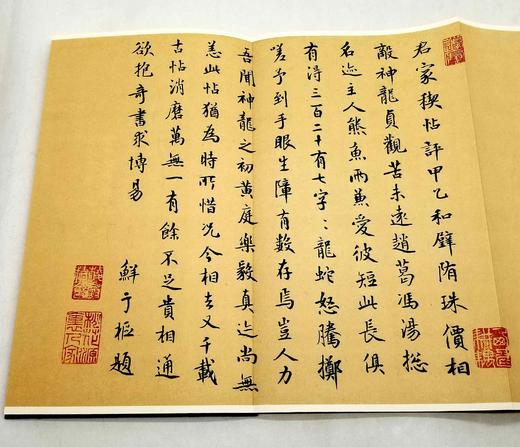 君家禊帖評甲乙和璧陏珠價相
敵神龍貞觀苦未遠趙葛馮湯摠
名迹主人熊魚兩兼愛彼短此長俱
有得三百二十有七字〻龍蛇怒騰擲
嗟予到手眼生障有数存焉豈人力
吾聞神龍之初黄庭樂毅真迹尚無
恙此帖猶為時所惜况今相去又千載
古帖消磨萬無一有餘不足貴相通
欲抱奇書求博易
鮮于樞題